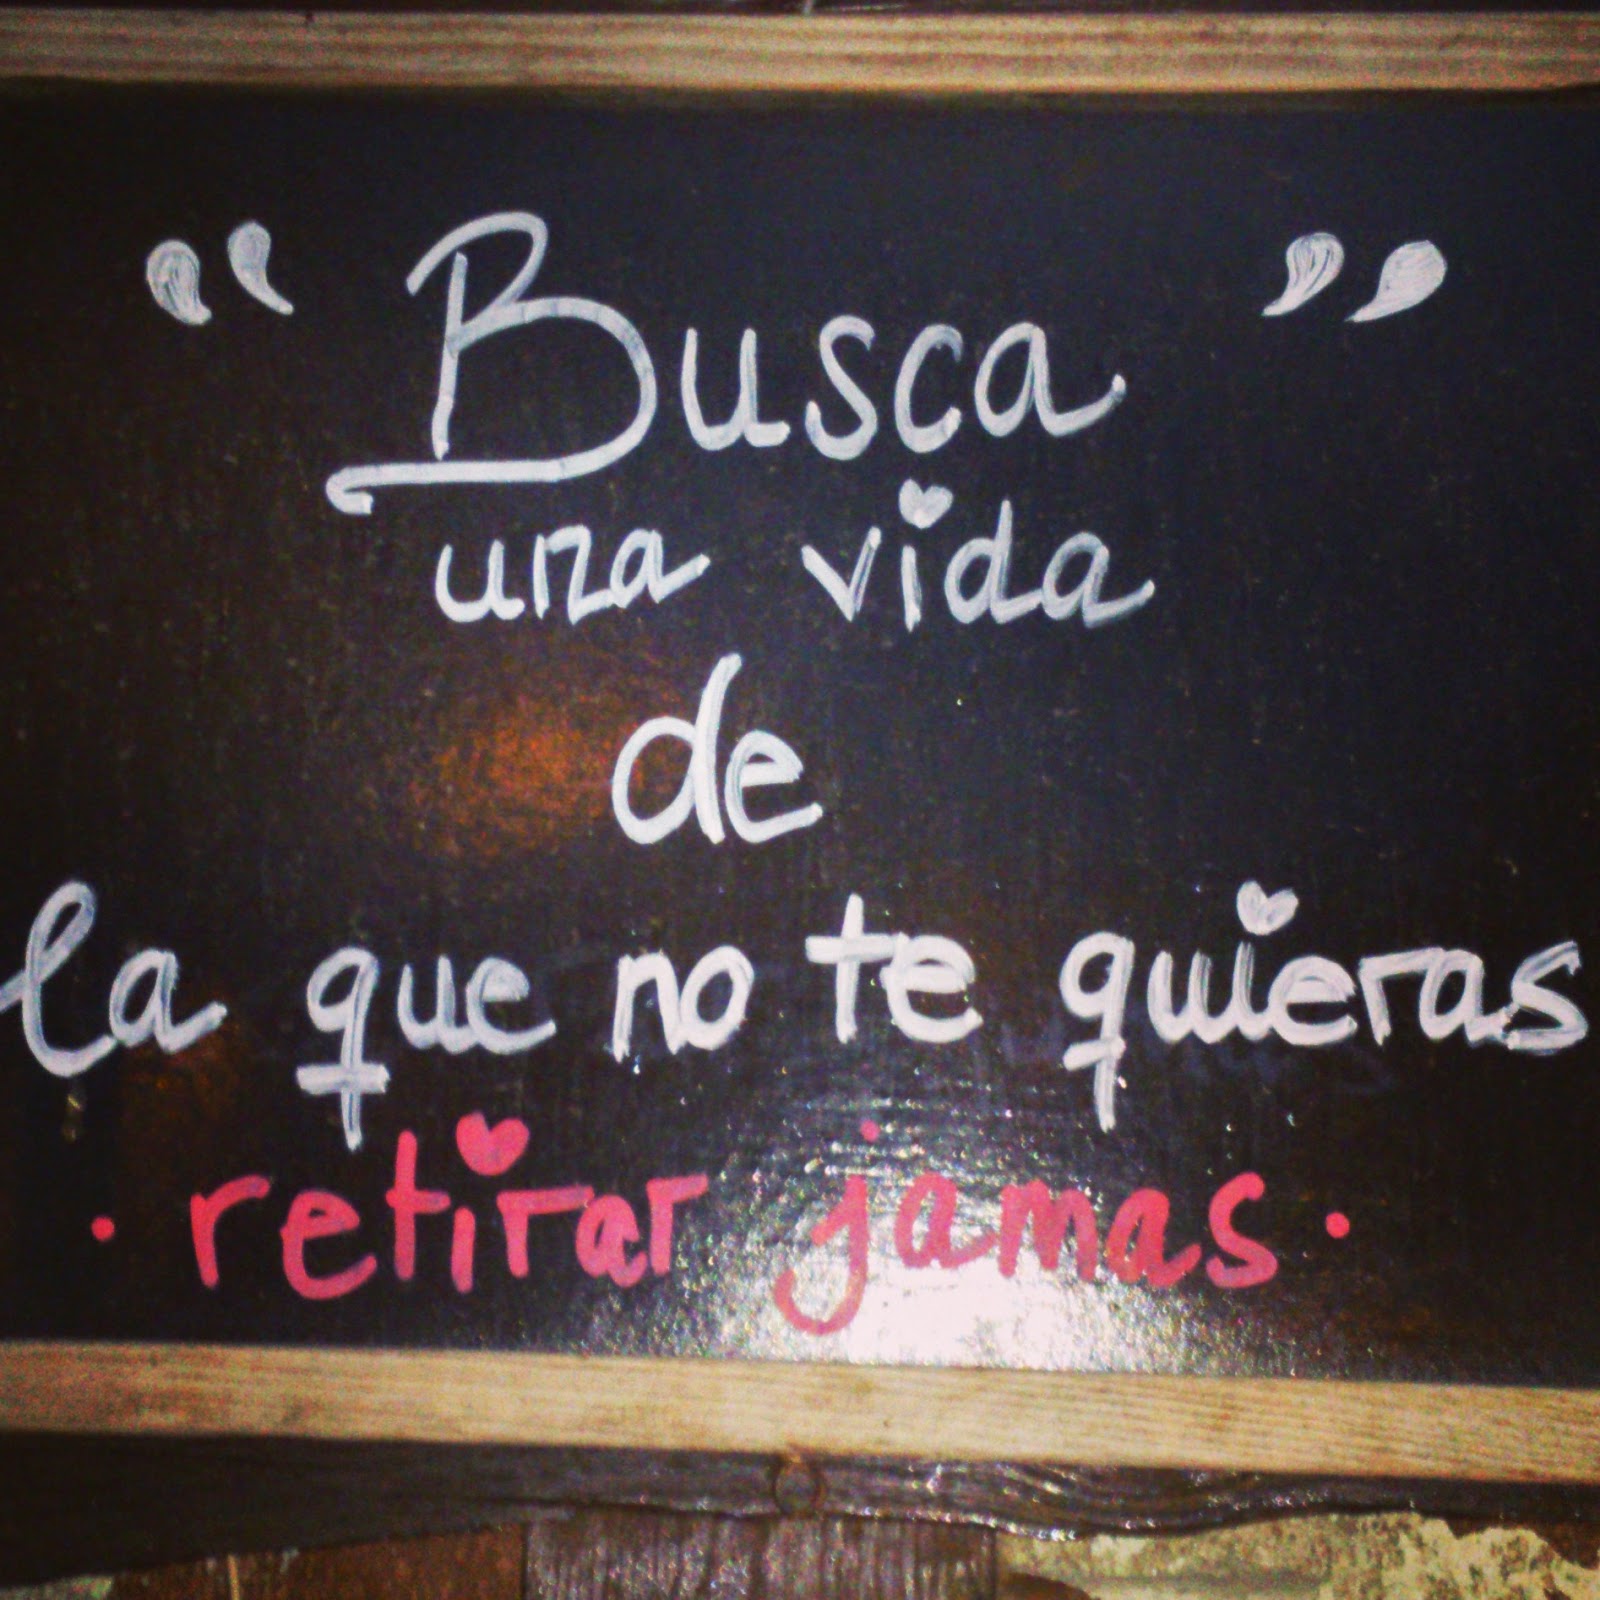 “ Busca ”
una vida
de
la que no te quieras
• retirar jamas •